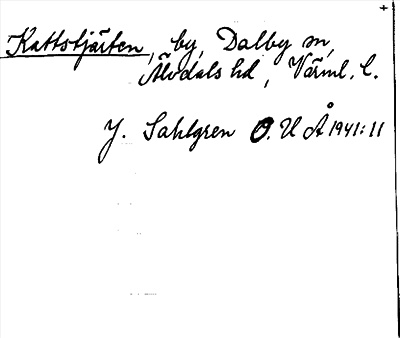 Kattstjärten, by, Dalby sn,
Älvdals hd, Värml. l.
J. Sahlgren O. U Å 1941:11